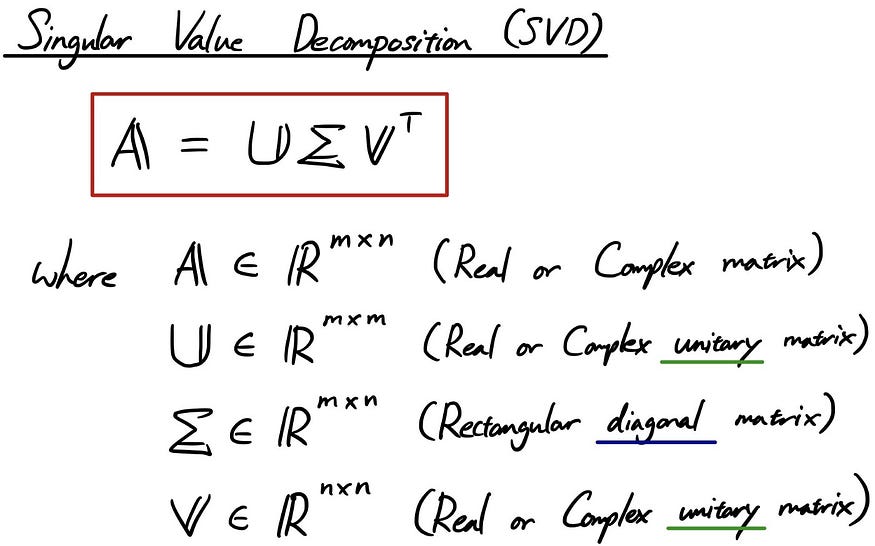 Singular Value Decomposition (SVD)
𝔸 = 𝕌 Σ 𝕍ᵀ
where 𝔸 ∈ ℝ^{m×n} (Real or Complex matrix)
𝕌 ∈ ℝ^{m×m} (Real or Complex unitary matrix)
Σ ∈ ℝ^{m×n} (Rectangular diagonal matrix)
𝕍 ∈ ℝ^{n×n} (Real or Complex unitary matrix)